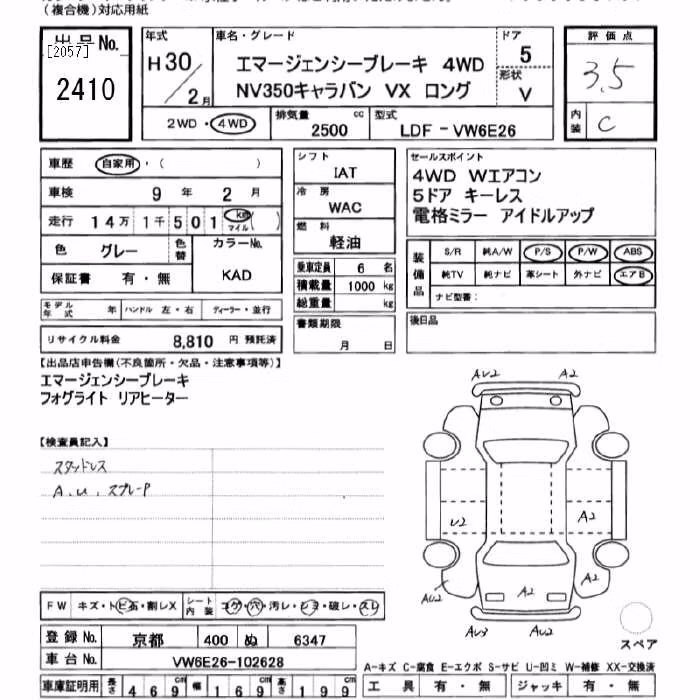 (複合機)対応用紙
出品No.
[2057]
2410
年式
H30/2月
車名・グレード
エマージェンシーブレーキ 4WD
NV350キャラバン VX ロング
ドア
5
形状
V
評価点
3.5
内装
C
2WD・4WD
排気量
2500 cc
型式
LDF-VW6E26
車歴 自家用・( )
車検 9年 2月
走行 14万1千501 km マイル( )
色 グレー 色替 カラーNo.
保証書 有・無 KAD
モデル年式 年 ハンドル 左・右 ディーラー・並行
リサイクル料金 8,810 円 預託済
シフト
IAT
冷房
WAC
燃料
軽油
乗車定員 6 名
積載量 1000 kg
総重量 kg
書類期限
月 日
セールスポイント
4WD Wエアコン
5ドア キーレス
電格ミラー アイドルアップ
装備品
S/R 純A/W P/S P/W ABS
純TV 純ナビ 革シート 外ナビ エアB
ナビ型番:
後日品
【出品店申告欄(不良箇所・欠品・注意事項等)】
エマージェンシーブレーキ
フォグライト リアヒーター
【検査員記入】
スタッドレス
A.U.スプレーP
FW キズ・トビ石・割レX シート内装 コゲ・穴・汚レ・シミ・破レ・スレ
登録No. 京都 400 ぬ 6347
車台No. VW6E26-102628
車庫証明用 長さ 469cm 幅 169cm 高さ 199cm
AU2 A2
U2 A2
AU2 A2
AU3 AU2
スペア
A-キズ C-腐食 E-エクボ S-サビ U-凹ミ W-補修 XX-交換済
工具 有・無 ジャッキ 有・無